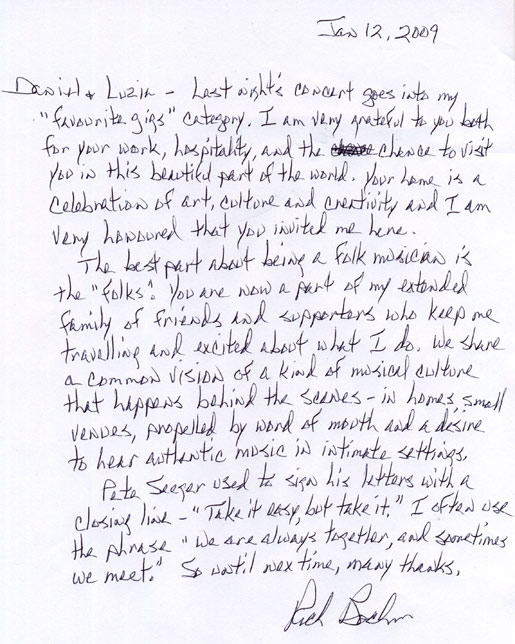 Jan 12, 2009
Daniel & Luzia - Last night's concert goes into my
"favourite gigs" category. I am very grateful to you both
for your work, hospitality, and the chance to visit
you in this beautiful part of the world. Your home is a
celebration of art, culture and creativity and I am
very honoured that you invited me here.
The best part about being a folk musician is
the "folks". You are now a part of my extended
family of friends and supporters who keep me
travelling and excited about what I do. We share
a common vision of a kind of musical culture
that happens behind the scenes - in homes, small
venues, propelled by word of mouth and a desire
to hear authentic music in intimate settings.
Pete Seeger used to sign his letters with a
closing line - "Take it easy, but take it." I often use
the phrase "we are always together, and sometimes
we meet." So until nex time, many thanks,
Rick